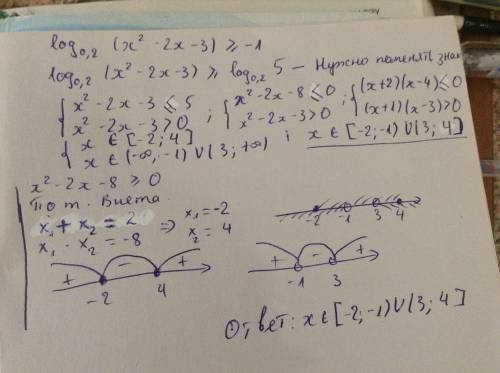 log₀,₂ (x² - 2x - 3) ≥ -1
log₀,₂ (x² - 2x - 3) ≥ log₀,₂ 5 — Нужно поменять знак
{ x² - 2x - 3 ≤ 5 ; { x² - 2x - 8 ≤ 0 ; { (x+2)(x-4) ≤ 0
{ x² - 2x - 3 > 0 ; { x² - 2x - 3 > 0 ; { (x+1)(x-3) > 0
{ x ∈ [-2; 4]
{ x ∈ (-∞, -1) ∪ (3; +∞) ; x ∈ [-2; -1) ∪ (3; 4]
x² - 2x - 8 ≥ 0
По т. Виета.
x₁ + x₂ = 2 ⇒ x₁ = -2
x₁ · x₂ = -8 x₂ = 4
-2 -1 3 4
+ - +
-2 4
+ - +
-1 3
Ответ: x ∈ [-2; -1) ∪ (3; 4]